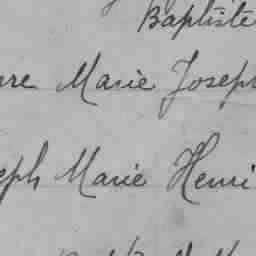 Baptiste
re Marie Joseph
eph Marie Henri